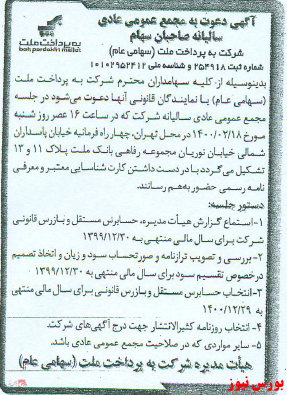 آگهی دعوت به مجمع عمومی عادی
سالیانه صاحبان سهام
شرکت به پرداخت ملت (سهامی عام)
شماره ثبت ۲۵۴۹۱۸ و شناسه ملی ۱۰۱۰۲۹۵۲۴۱۲
به پرداخت ملت
beh pardakht mellat
بدینوسیله از کلیه سهامداران محترم شرکت به پرداخت ملت
(سهامی عام) یا نمایندگان قانونی آنها دعوت می‌شود در جلسه
مجمع عمومی عادی سالیانه شرکت که در ساعت ۱۶ عصر روز شنبه
مورخ ۱۴۰۰/۰۲/۱۸ در محل تهران، چهارراه فرمانیه خیابان پاسداران
شمالی خیابان نوریان مجموعه رفاهی بانک ملت پلاک ۱۱ و ۱۳
تشکیل می‌گردد با در دست داشتن کارت شناسایی معتبر و معرفی
نامه رسمی حضور به هم رسانند.
دستور جلسه:
۱-استماع گزارش هیأت مدیره، حسابرس مستقل و بازرس قانونی
شرکت برای سال مالی منتهی به ۱۳۹۹/۱۲/۳۰
۲-بررسی و تصویب ترازنامه و صورتحساب سود و زیان و اتخاذ تصمیم
درخصوص تقسیم سود برای سال مالی منتهی به ۱۳۹۹/۱۲/۳۰
۳-انتخاب حسابرس مستقل و بازرس قانونی برای سال مالی منتهی
به ۱۴۰۰/۱۲/۲۹
۴- انتخاب روزنامه کثیرالانتشار جهت درج آگهی‌های شرکت.
۵- سایر مواردی که در صلاحیت مجمع عمومی عادی باشد.
هیأت مدیره شرکت به پرداخت ملت (سهامی عام)
بورس نیوز